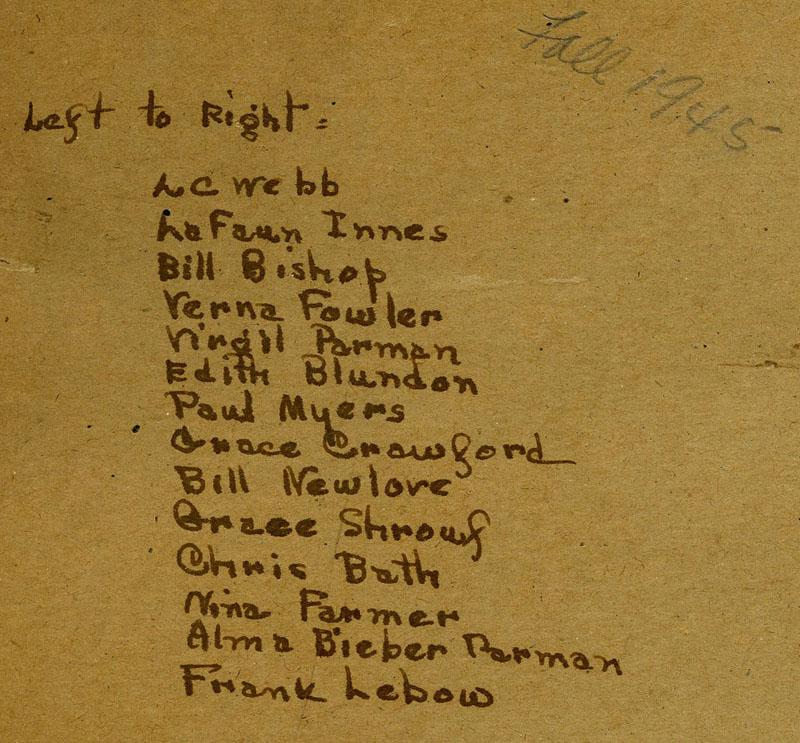 Fall 1945
Left to Right:
LC Webb
LaFaun Innes
Bill Bishop
Verna Fowler
Virgil Parman
Edith Blundon
Paul Myers
Grace Crawford
Bill Newlove
Grace Shrouf
Chris Bath
Nina Farmer
Alma Bieber Parman
Frank Lebow